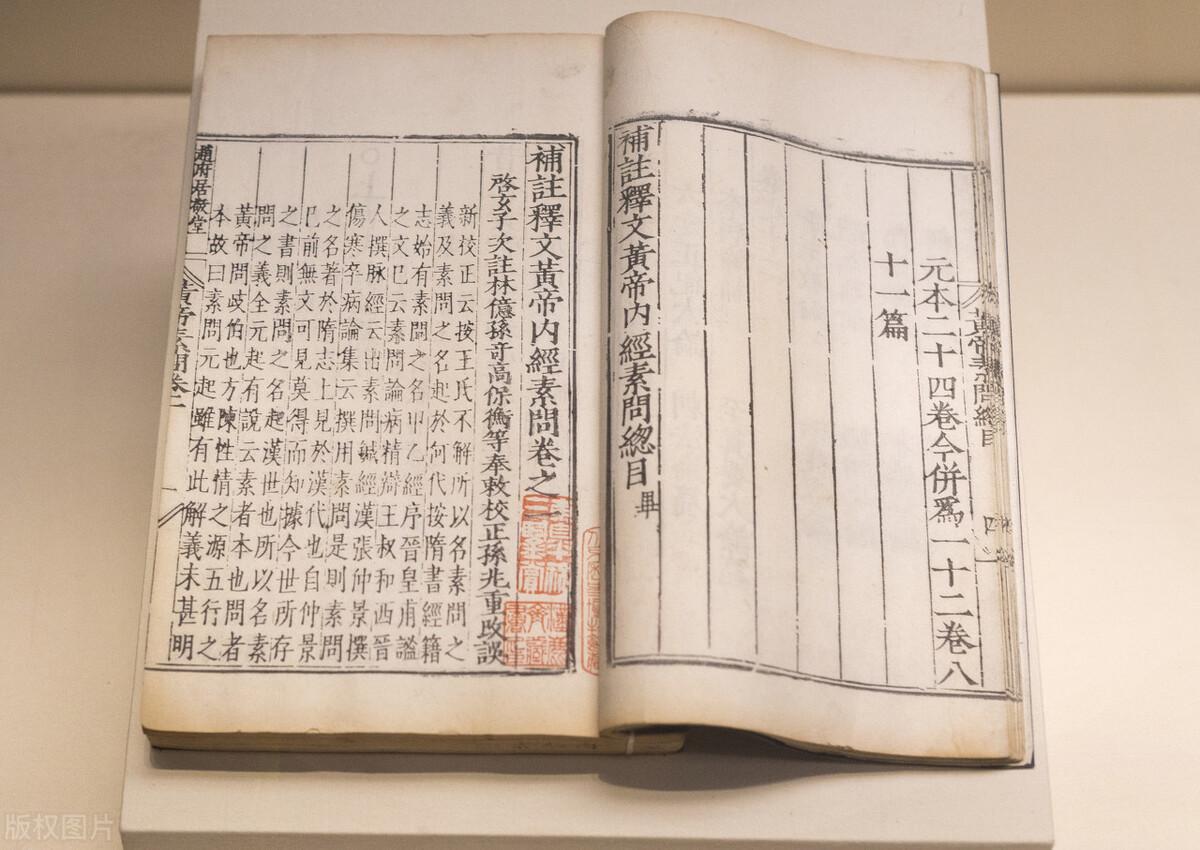 黃帝素問總目 四
元本二十四卷今併爲一十二卷八
十一篇
補註釋文黃帝內經素問總目畢
補註釋文黃帝內經素問卷之一
啓玄子次註林億孫奇高保衡等奉敕校正孫兆重改誤
新校正云按王氏不解所以名素問之
義及素問之名起於何代按隋書經籍
志始有素問之名甲乙經序晉皇甫謐
之文已云素問論病精辯王叔和西晉
人撰脉經云出素問鍼經漢張仲景撰
傷寒卒病論集云撰用素問是則素問
之名著於隋志上見於漢代也自仲景
已前無文可見莫得而知據今世所存
之書則素問之名起漢世也所以名素
問之義全元起有說云素者本也問者
黃帝問歧伯也方陳性情之源五行之
本故曰素問元起雖有此解義未甚明
趙府居敬堂
黃帝素問卷一
版权图片